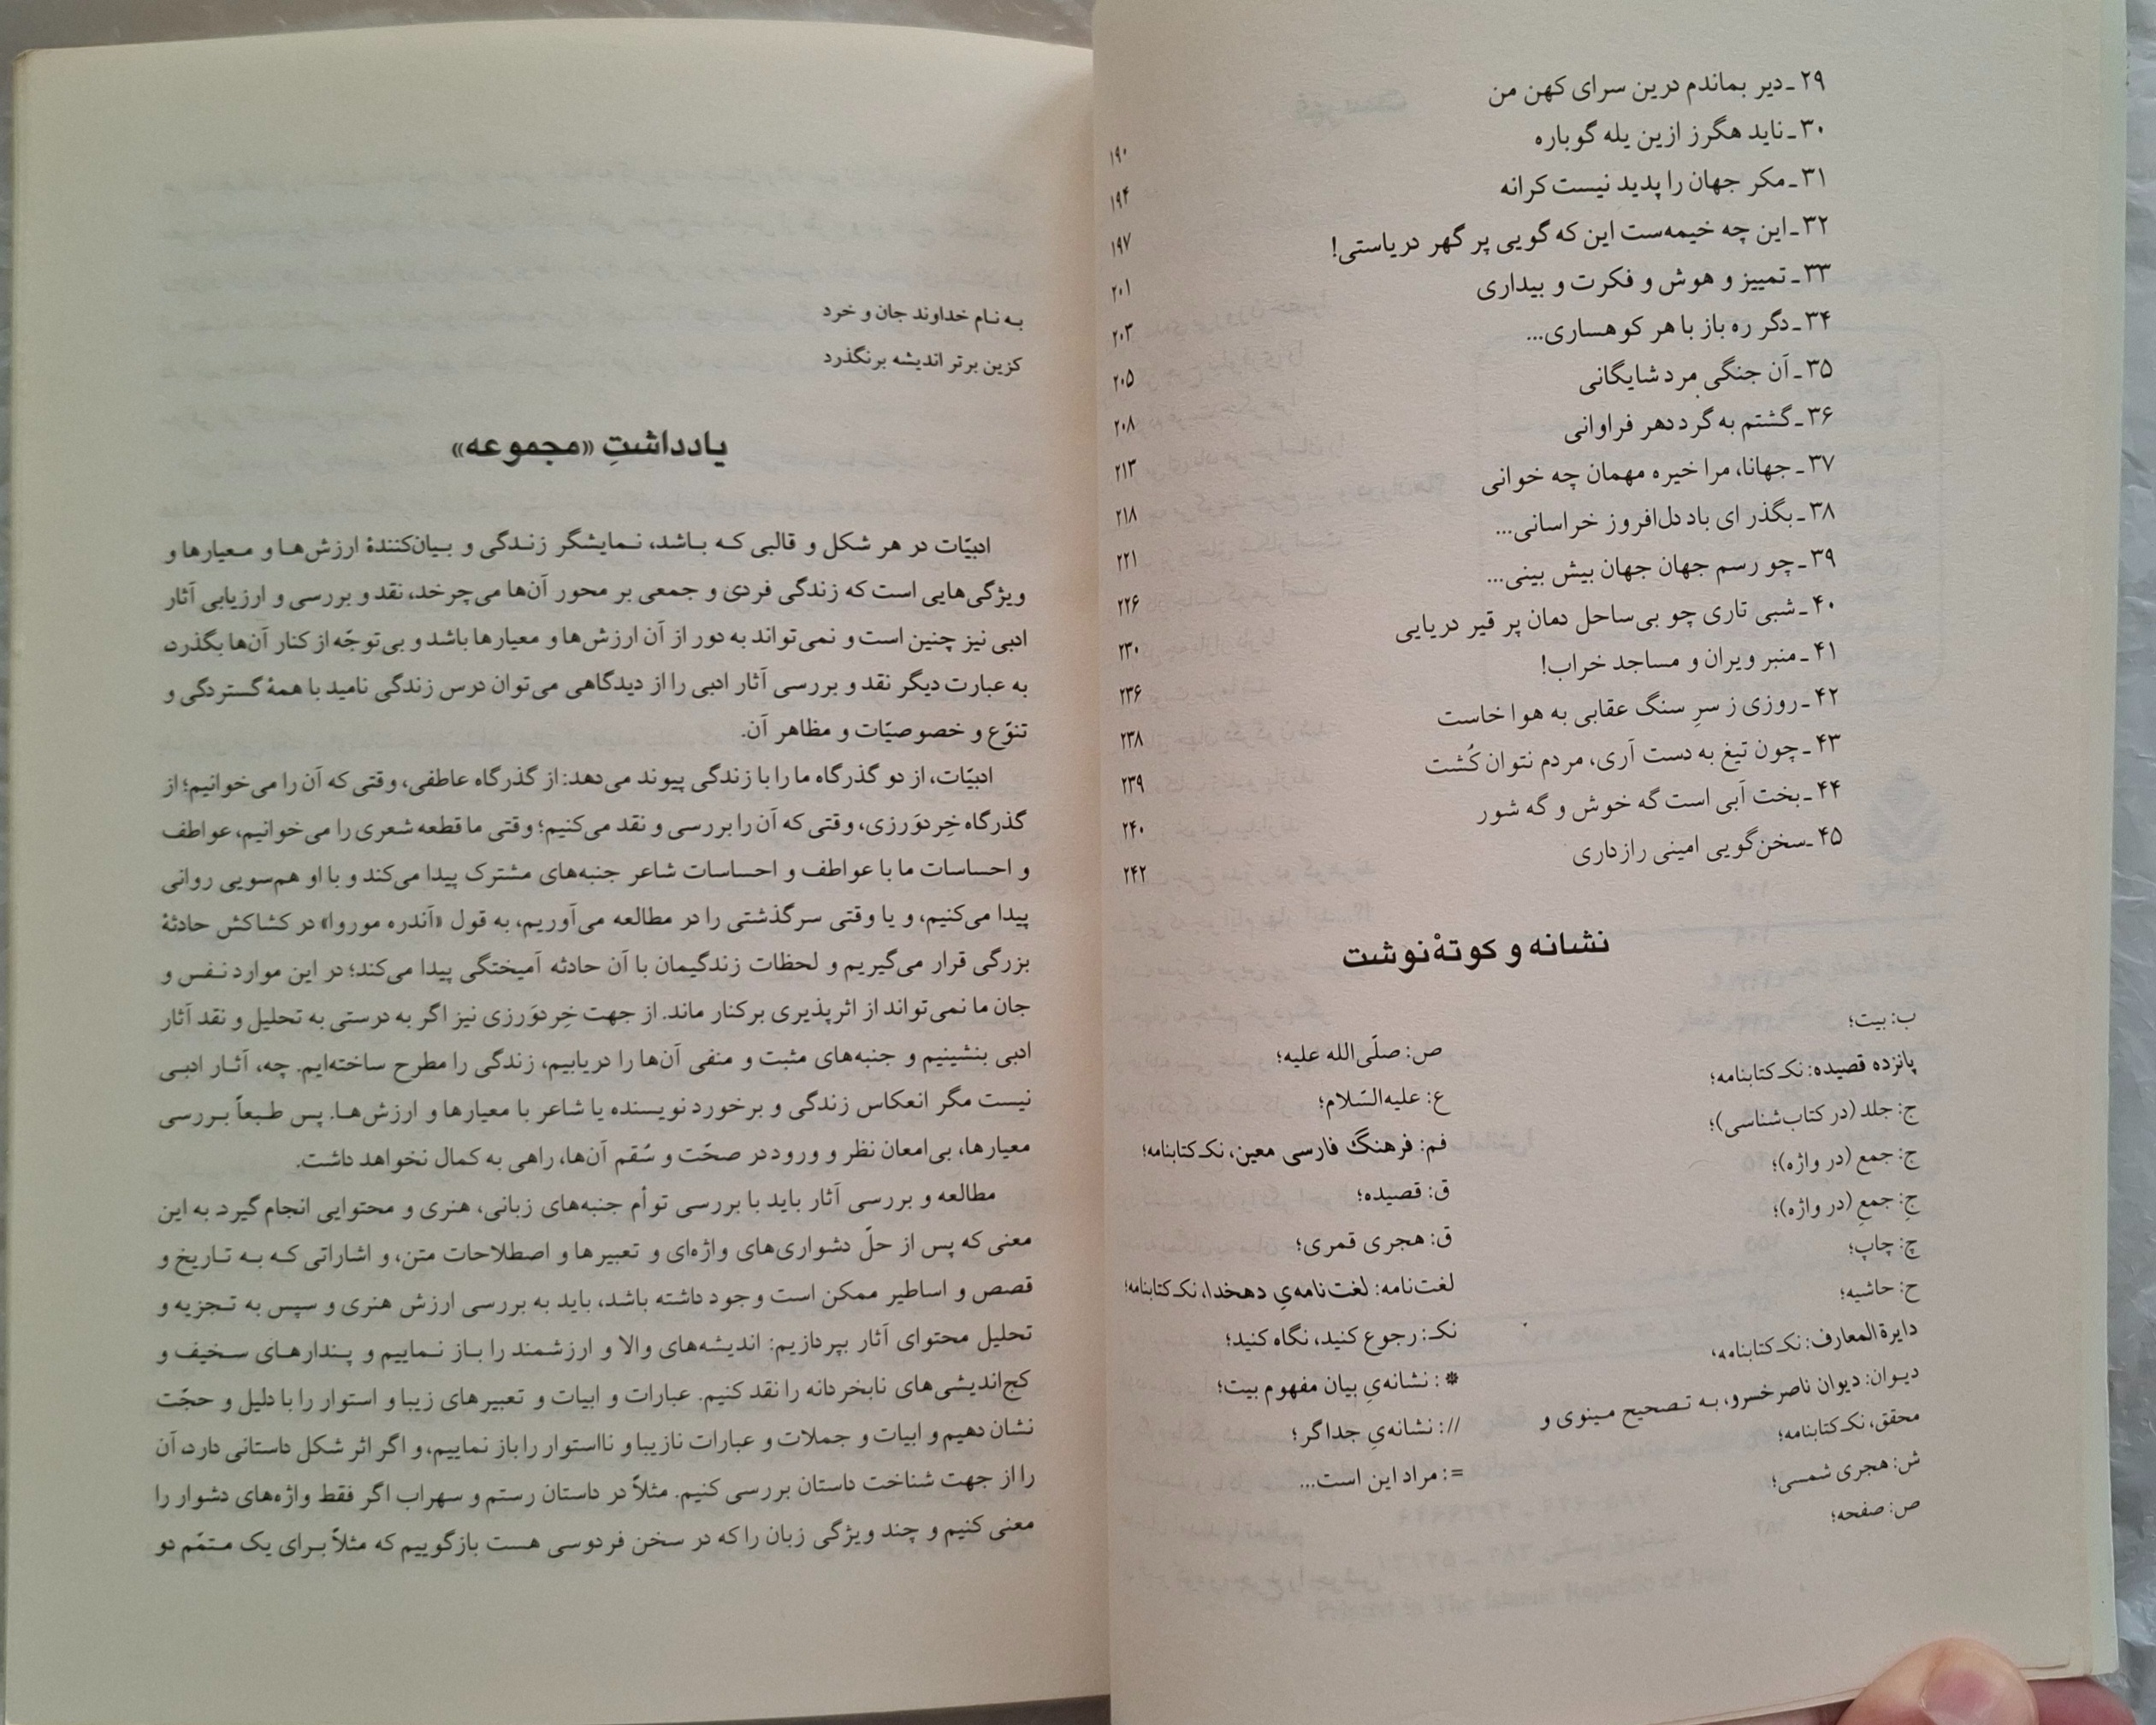 ۲۹ـ دیر بماندم درین سرای کهن من ۱۹۰
۳۰ـ ناید هگرز ازین یله گوباره ۱۹۴
۳۱ـ مکر جهان را پدید نیست کرانه ۱۹۷
۳۲ـ این چه خیمه‌ست این که گویی پر گهر دریاستی! ۲۰۱
۳۳ـ تمییز و هوش و فکرت و بیداری ۲۰۳
۳۴ـ دگر ره باز با هر کوهساری... ۲۰۵
۳۵ـ آن جنگی مرد شایگانی ۲۰۸
۳۶ـ گشتم به گرد دهر فراوانی ۲۱۳
۳۷ـ جهانا، مرا خیره مهمان چه خوانی ۲۱۸
۳۸ـ بگذر ای باد دل‌افروز خراسانی... ۲۲۱
۳۹ـ چو رسم جهان جهان بیش بینی... ۲۲۶
۴۰ـ شبی تاری چو بی‌ساحل دمان پر قیر دریایی ۲۳۰
۴۱ـ منبر ویران و مساجد خراب! ۲۳۶
۴۲ـ روزی ز سرِ سنگ عقابی به هوا خاست ۲۳۸
۴۳ـ چون تیغ به دست آری، مردم نتوان کُشت ۲۳۹
۴۴ـ بخت آبی است گه خوش و گه شور ۲۴۰
۴۵ـ سخن‌گویی امینی رازداری ۲۴۲
نشانه و کوتهْ‌نوشت
ب: بیت؛
پانزده قصیده: نک‍ کتابنامه؛
ج: جلد (در کتاب‌شناسی)؛
ج: جمع (در واژه)؛
جِ: جمعِ (در واژه)؛
چ: چاپ؛
ح: حاشیه؛
دایرةالمعارف: نک‍ کتابنامه؛
دیـوان: دیوان ناصرخسرو، بـه تـصحیح مـینوی و
محقق، نک‍ کتابنامه؛
ش: هجری شمسی؛
ص: صفحه؛
ص: صلّی‌الله علیه؛
ع: علیه‌السّلام؛
فم: فرهنگ فارسی معین، نک‍ کتابنامه؛
ق: قصیده؛
ق: هجری قمری؛
لغت‌نامه: لغت‌نامه‌یِ دهخدا، نک‍ کتابنامه؛
نک‍: رجوع کنید، نگاه کنید؛
* : نشانه‌یِ بیان مفهوم بیت؛
//: نشانه‌یِ جداگر؛
=: مراد این است...
بـه نـام خداوند جان و خرد
کزین برتر اندیشه برنگذرد
یادداشتِ «مجموعه»
ادبیّات در هر شکل و قالبی کـه بـاشد، نـمایشگر زنـدگی و بـیان‌کنندهٔ ارزش‌هـا و مـعیارها و
ویژگی‌هایی است که زندگی فردی و جمعی بر محور آن‌ها می‌چرخد، نقد و بررسی و ارزیابی آثار
ادبی نیز چنین است و نمی‌تواند به دور از آن ارزش‌ها و معیارها باشد و بی‌توجّه از کنار آن‌ها بگذرد،
به عبارت دیگر نقد و بررسی آثار ادبی را از دیدگاهی می‌توان درس زندگی نامید با همهٔ گستردگی و
تنوّع و خصوصیّات و مظاهر آن.
ادبیّات، از دو گذرگاه ما را با زندگی پیوند می‌دهد: از گذرگاه عاطفی، وقتی که آن را می‌خوانیم؛ از
گذرگاه خِردوَرزی، وقتی که آن را بررسی و نقد می‌کنیم؛ وقتی ما قطعه شعری را می‌خوانیم، عواطف
و احساسات ما با عواطف و احساسات شاعر جنبه‌های مشترک پیدا می‌کند و با او هم‌سویی روانی
پیدا می‌کنیم، و یا وقتی سرگذشتی را در مطالعه می‌آوریم، به قول «آندره موروا» در کشاکش حادثهٔ
بزرگی قرار می‌گیریم و لحظات زندگیمان با آن حادثه آمیختگی پیدا می‌کند؛ در این موارد نـفس و
جان ما نمی‌تواند از اثرپذیری برکنار ماند. از جهت خِردوَرزی نیز اگر به درستی به تحلیل و نقد آثار
ادبی بنشینیم و جنبه‌های مثبت و منفی آن‌ها را دریابیم، زندگی را مطرح ساخته‌ایم. چه، آثـار ادبـی
نیست مگر انعکاس زندگی و برخورد نویسنده یا شاعر با معیارها و ارزش‌هـا. پس طـبعاً بـررسی
معیارها، بی‌امعان نظر و ورود در صحّت و سُقم آن‌ها، راهی به کمال نخواهد داشت.
مطالعه و بررسی آثار باید با بررسی توأم جنبه‌های زبانی، هنری و محتوایی انجام گیرد. به این
معنی که پس از حلّ دشواری‌های واژه‌ای و تعبیرها و اصطلاحات متن، و اشاراتی کـه بـه تـاریخ و
قصص و اساطیر ممکن است وجود داشته باشد، باید به بررسی ارزش هنری و سپس به تـجزیه و
تحلیل محتوای آثار بپردازیم: اندیشه‌های والا و ارزشمند را بـاز نـماییم و پـندارهـای سـخیف و
کج‌اندیشی‌های نابخردانه را نقد کنیم. عبارات و ابیات و تعبیرهای زیبا و استوار را با دلیل و حجّت
نشان دهیم و ابیات و جملات و عبارات نازیبا و نااستوار را باز نماییم، و اگر اثر شکل داستانی دارد، آن
را از جهت شناخت داستان بررسی کنیم. مثلاً در داستان رستم و سهراب اگر فقط واژه‌های دشوار را
معنی کنیم و چند ویژگی زبان را که در سخن فردوسی هست بازگوییم که مثلاً بـرای یک مـتمّم دو